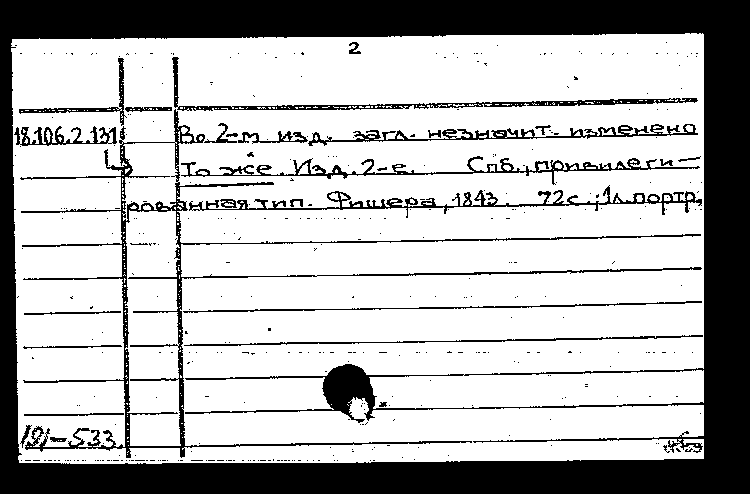 2
18.106.2.131 Во 2-м изд. загл. незначит. изменено
То же. Изд. 2-е. Спб., привилеги-
рованная тип. Фишера, 1843. 72с.; 1л. портр.
191-533.